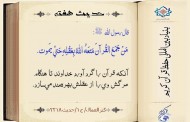 حدیث هفته
قال رسول الله ﷺ:
مَنْ جَمَعَ الْقُرآنَ مَتَّعَهُ اللهُ بِعَقْلِهِ حَتَّى يَمُوت.
آنکه قرآن را گرد آورد خداوند تا هنگام
مرگش وی را از عقلش بهره‌مند می‌سازد.
کنز العمال، ج ۱، حدیث ۲۳۱۸